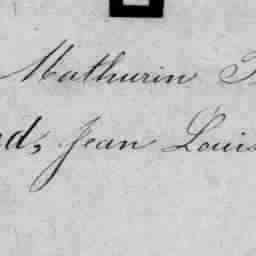 Mathurin
Jean Louis